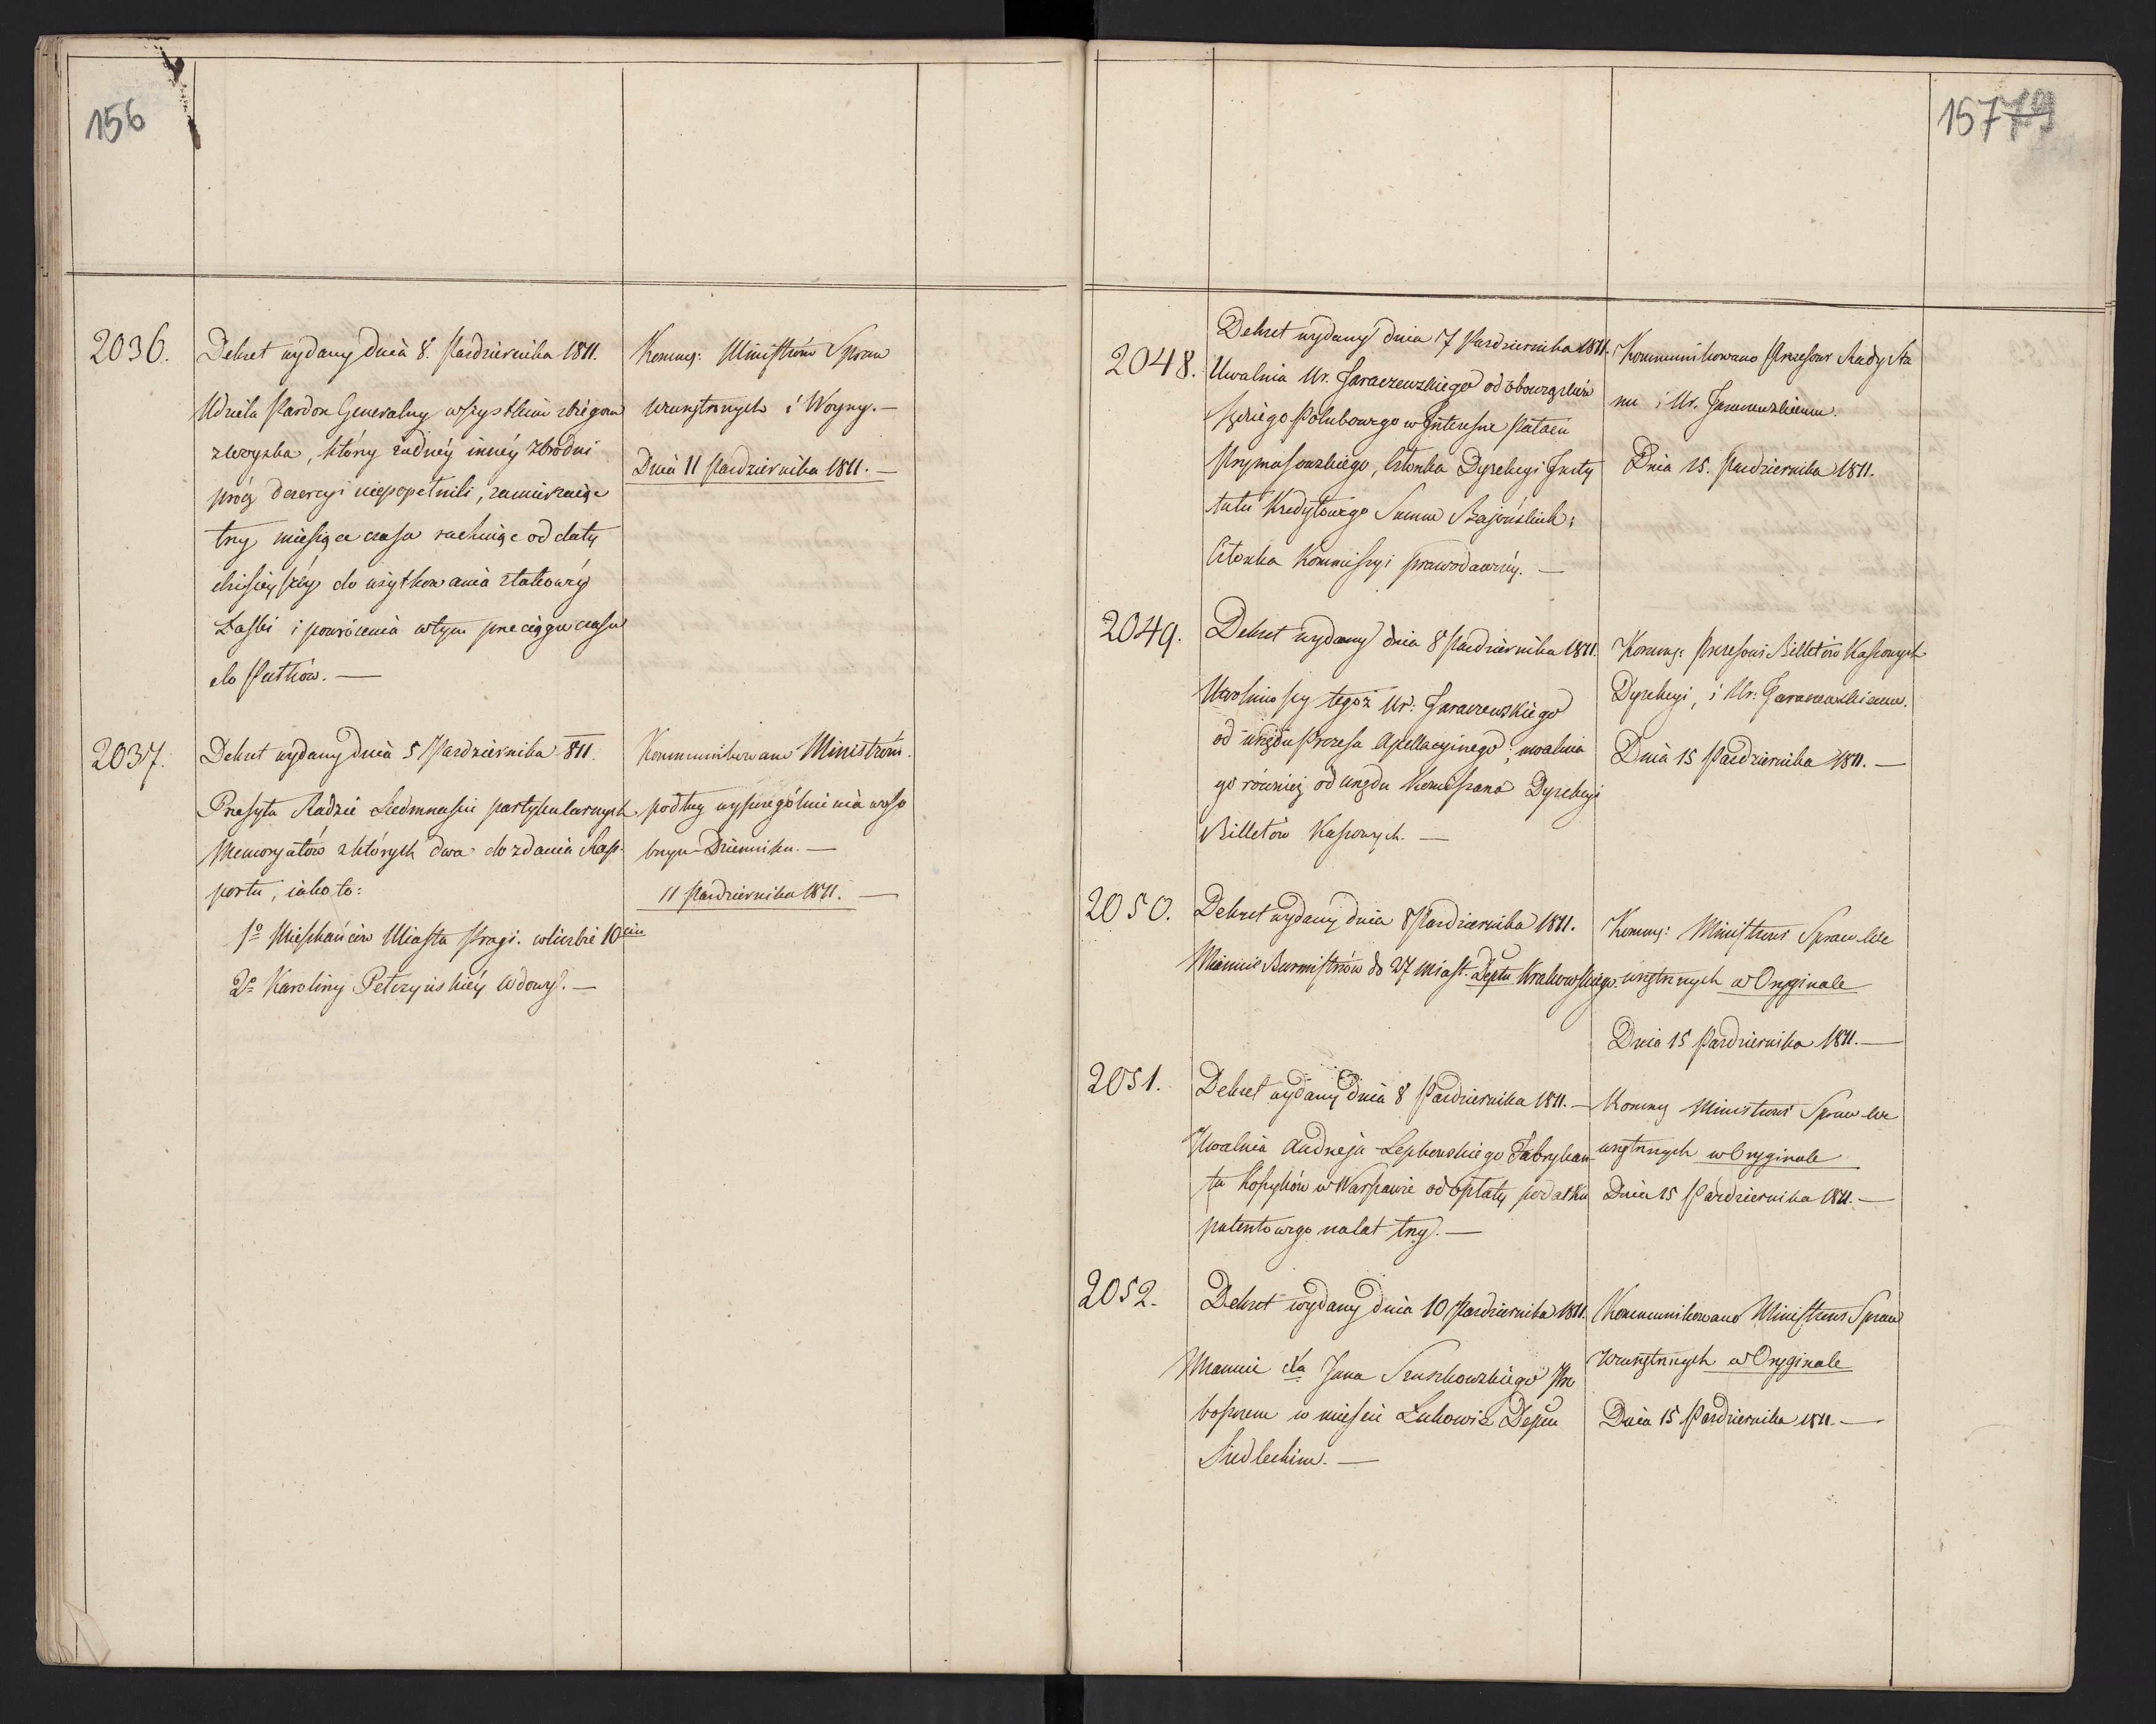 156
2036.
Dekret wydany dnia 8. Października 1811.
Udziela Pardon Generalny wszystkim zbiegom
z woyska, którzy żadnéy innéy zbrodni
prócz dezercyi niepopełnili, zamierzaiąc
trzy miesiące czasu rachuiąc od daty
dzisieyszéy do użytkowania z takowéy
Łaski i powrócenia w tym przeciągu czasu
do Pułków. —
Kommq: Ministróm Spraw
Wewnętrznych i Woyny. —
Dnia 11 Października 1811. —
2037.
Dekret wydany dnia 5 Października 811.
Przesyła Radzie Siedmnaście partykularnych
Memoryałów z których dwa do zdania Rap-
portu, iako to:
1o Mieszkańców Miasta Pragi. w liczbie 10ciu
2o Karoliny Pełczyńskiéy Wdowy. —
Kommunikowano Ministróm
podług wyszczególnienia w oso
bnym Dzienniku. —
11 Października 1811. —
157 79
2048.
Dekret wydany dnia 7 Października 1811.
Uwalnia Ur. Jaraczewskiego od obowiązków
Sędziego Polubowego w Interesie Pałacu
Prymasowskiego, Członka Dyrekcyi Insty
tutu Kredytowego Summ Bajońskich i
Członka Kommissyi prawodawczéy. —
Kommunikowano Prezesowi Rady Sta
nu i Ur. Jaraczewskiemu.
Dnia 15. Października 1811.
2049.
Dekret wydany dnia 8 Października 1811.
Uwolniwszy tegoż Ur: Jaraczewskiego
od urzędu Prezesa Apellacyinego, uwalnia
go również od urzędu Komissarza Dyrekcyi
Billetów Kassowych. —
Kommq: Prezesowi Billetów Kassowych
Dyrekcyi, i Ur: Jaraczewskiemu.
Dnia 15 Października 1811. —
2050.
Dekret wydany dnia 8 Października 1811.
Mianuie Burmistrzów do 27 miast Deptu Krakowskiego.
Kommq: Ministrowi Spraw We
wnętrznych w Oryginale
Dnia 15 Października 1811. —
2051.
Dekret wydany dnia 8 Października 1811. —
Uwalnia Andrzeja Lepkowskiego Fabrykan-
ta Koszyków w Warszawie od opłaty podatku
patentowego na lat trzy. —
Kommq Ministrowi Spraw We
wnętrznych w Oryginale
Dnia 15 Października 1811. —
2052.
Dekret wydany dnia 10 Października 1811.
Mianuie Xa Jana Szuszkowskiego Pro
boszczem w mieście Łukowie Depcie
Siedleckim. —
Kommunikowano Ministrowi Spraw
Wewnętrznych w Oryginale
Dnia 15 Października 1811. —